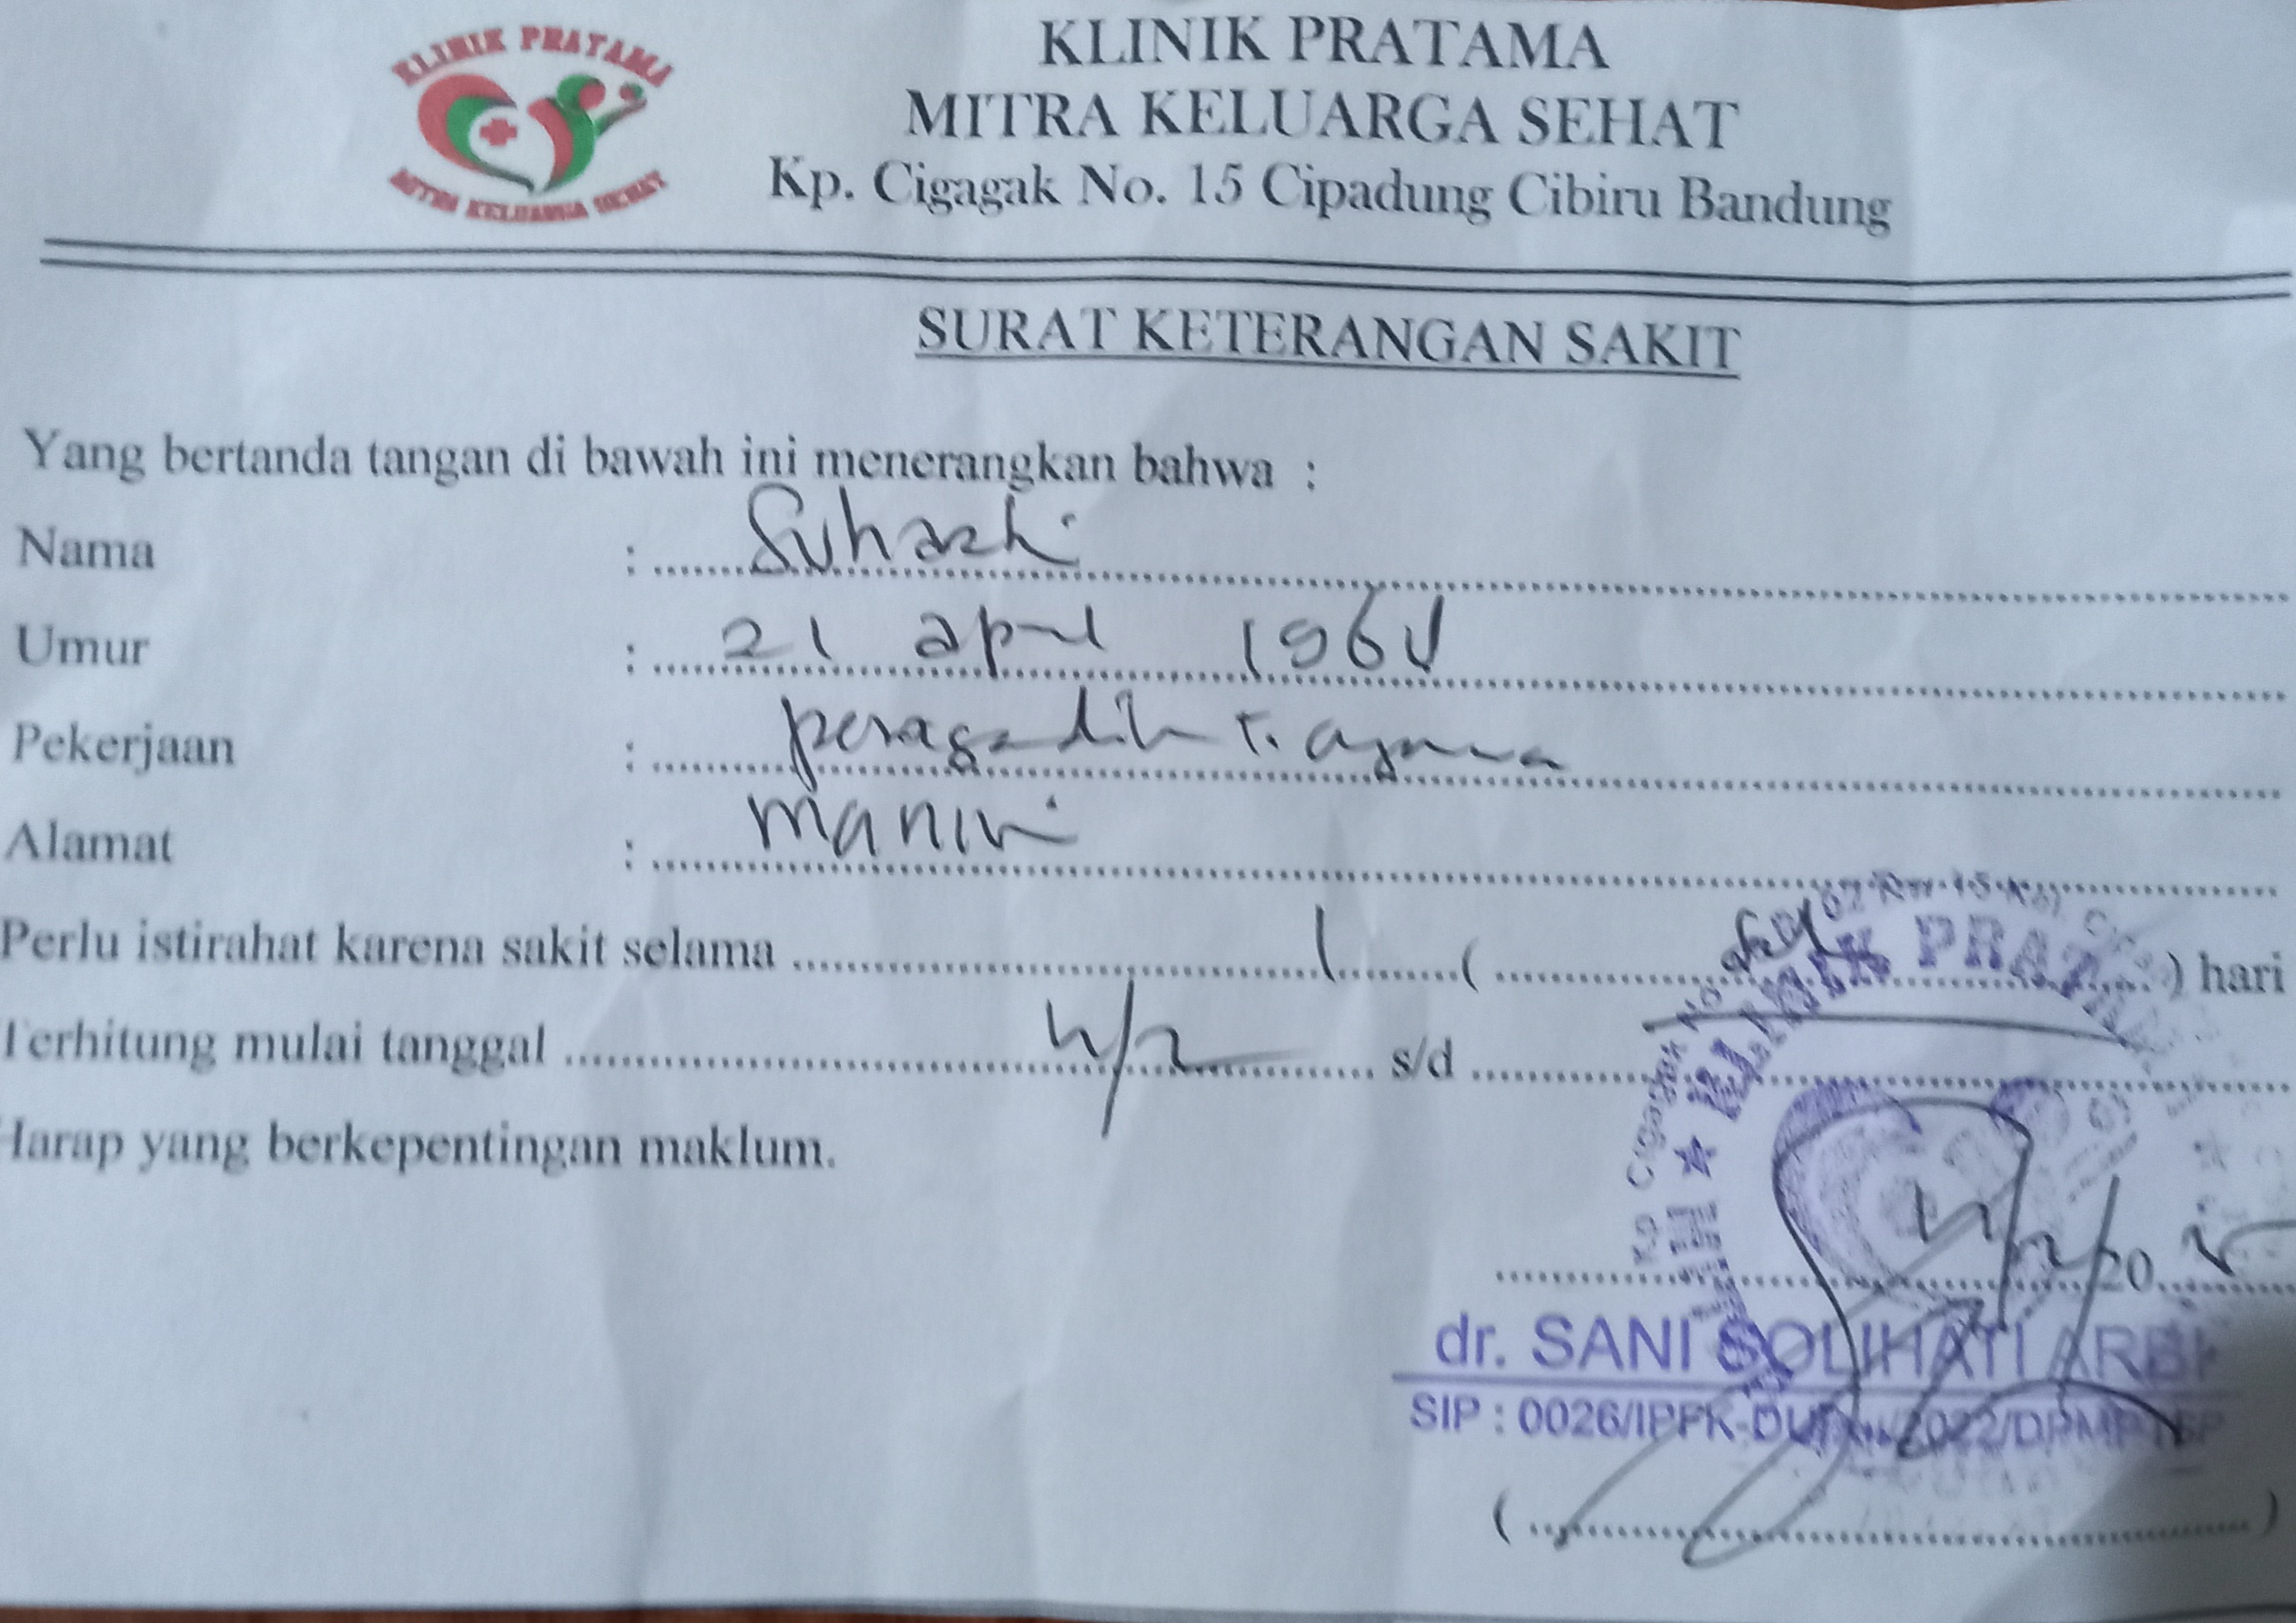 KLINIK PRATAMA
MITRA KELUARGA SEHAT
KLINIK PRATAMA
MITRA KELUARGA SEHAT
Kp. Cigagak No. 15 Cipadung Cibiru Bandung
SURAT KETERANGAN SAKIT
Yang bertanda tangan di bawah ini menerangkan bahwa :
Nama :
Umur : 21 april 196
Pekerjaan : agama
Alamat :
Perlu istirahat karena sakit selama 1 ( ) hari
Terhitung mulai tanggal s/d
Harap yang berkepentingan maklum.
20
dr. SANI SOLIHATI ARBI
SIP : 0026/IPFK-DU /2022/DPMPTSP
( )